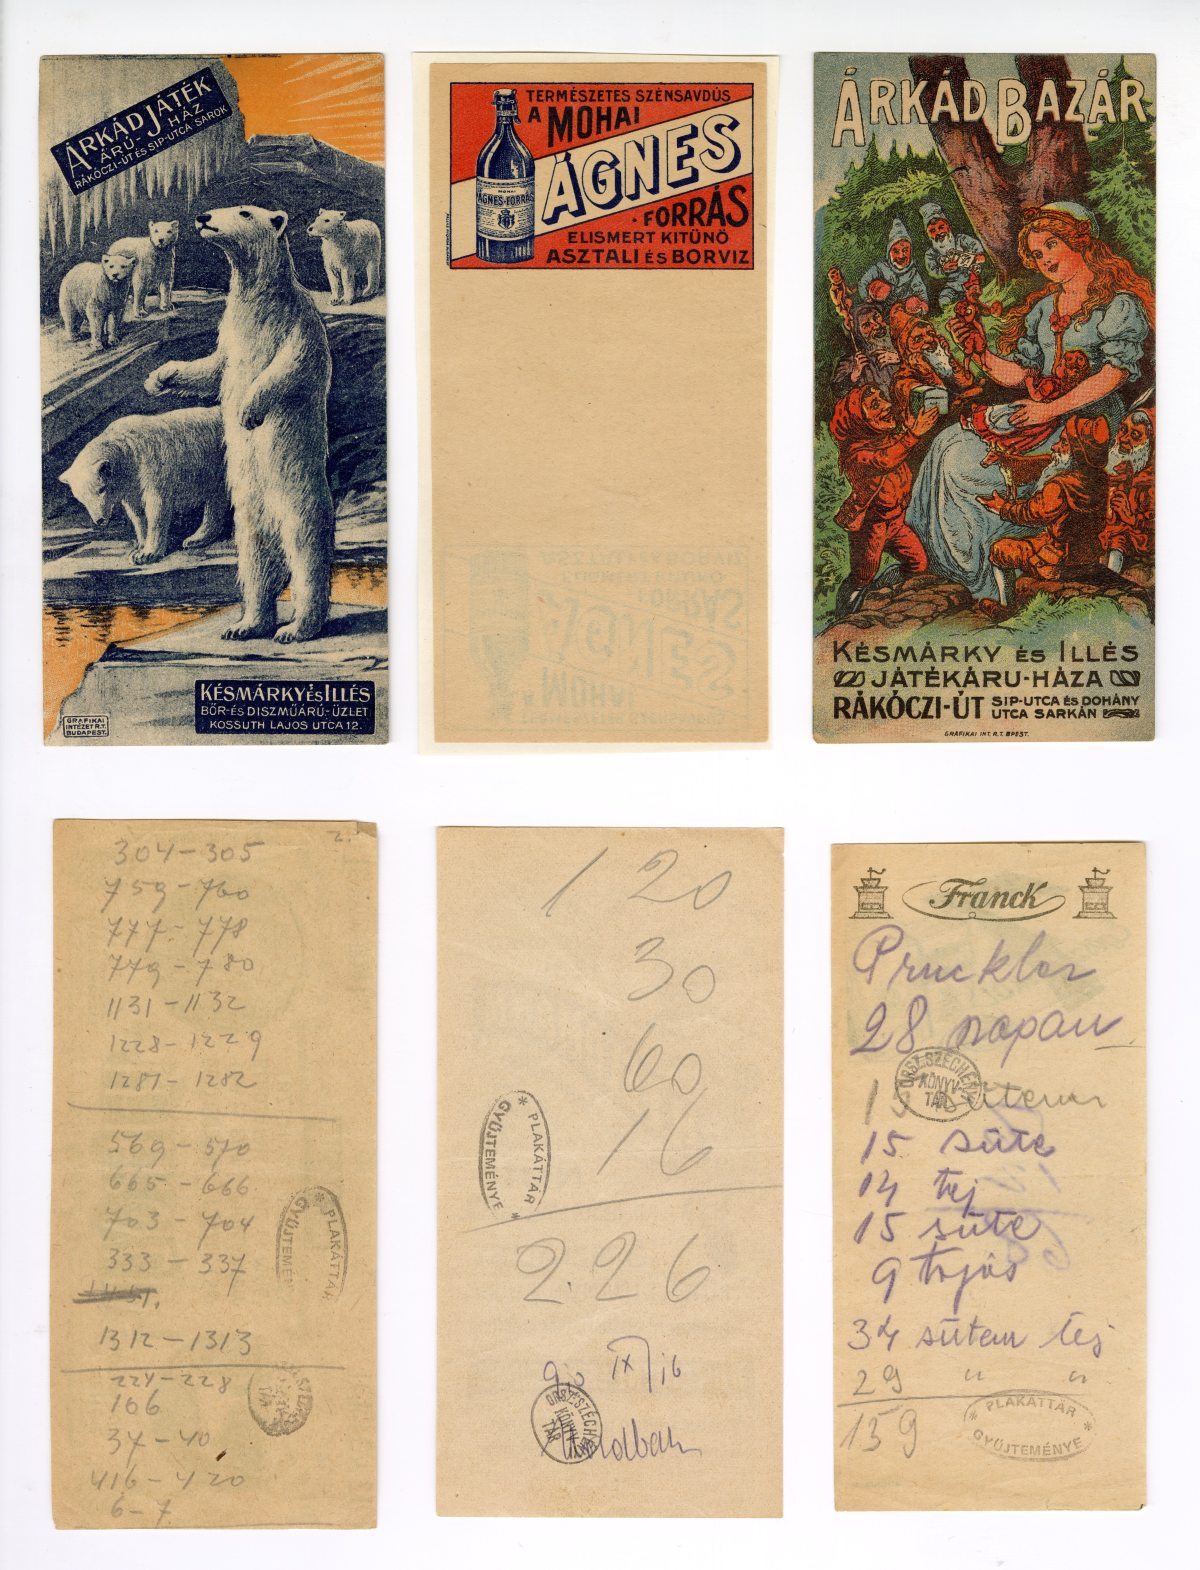 ÁRKÁD JÁTÉK
ÁRÚ-HÁZ
RÁKÓCZI-ÚT ÉS SIP-UTCA SAROK
KÉSMÁRKY ÉS ILLÉS
BŐR- ÉS DISZMŰÁRÚ-ÜZLET
KOSSUTH LAJOS UTCA 12.
GRAFIKAI
INTÉZET R.T.
BUDAPEST.
TERMÉSZETES SZÉNSAVDÚS
A MOHAI
ÁGNES
FORRÁS
ELISMERT KITÜNŐ
ASZTALI ÉS BORVIZ
MOHAI
ÁGNES-FORRÁS
ÁRKÁD BAZÁR
KÉSMÁRKY ÉS ILLÉS
JÁTÉKÁRU-HÁZA
RÁKÓCZI-ÚT SIP-UTCA ÉS DOHÁNY
UTCA SARKÁN
GRAFIKAI INT. R.T. BPEST.
2.
304-305
759-760
777-778
779-780
1131-1132
1228-1229
1281-1282
569-570
665-666
703-704
333-337
1312-1313
224-228
106
37-40
416-420
6-7
* PLAKÁTTÁR *
GYŰJTEMÉNYE
1 20
30
60
16
2.26
IX/16
* PLAKÁTTÁR *
GYŰJTEMÉNYE
ORSZ. SZÉCHÉNYI
KÖNYV-
TÁR
Franck
28 napan
15 sütem
15 süte
14 tej
15 süte
9 tojás
34 sütem tej
29 " "
159
ORSZ. SZÉCHÉNYI
KÖNYV-
TÁR
* PLAKÁTTÁR *
GYŰJTEMÉNYE